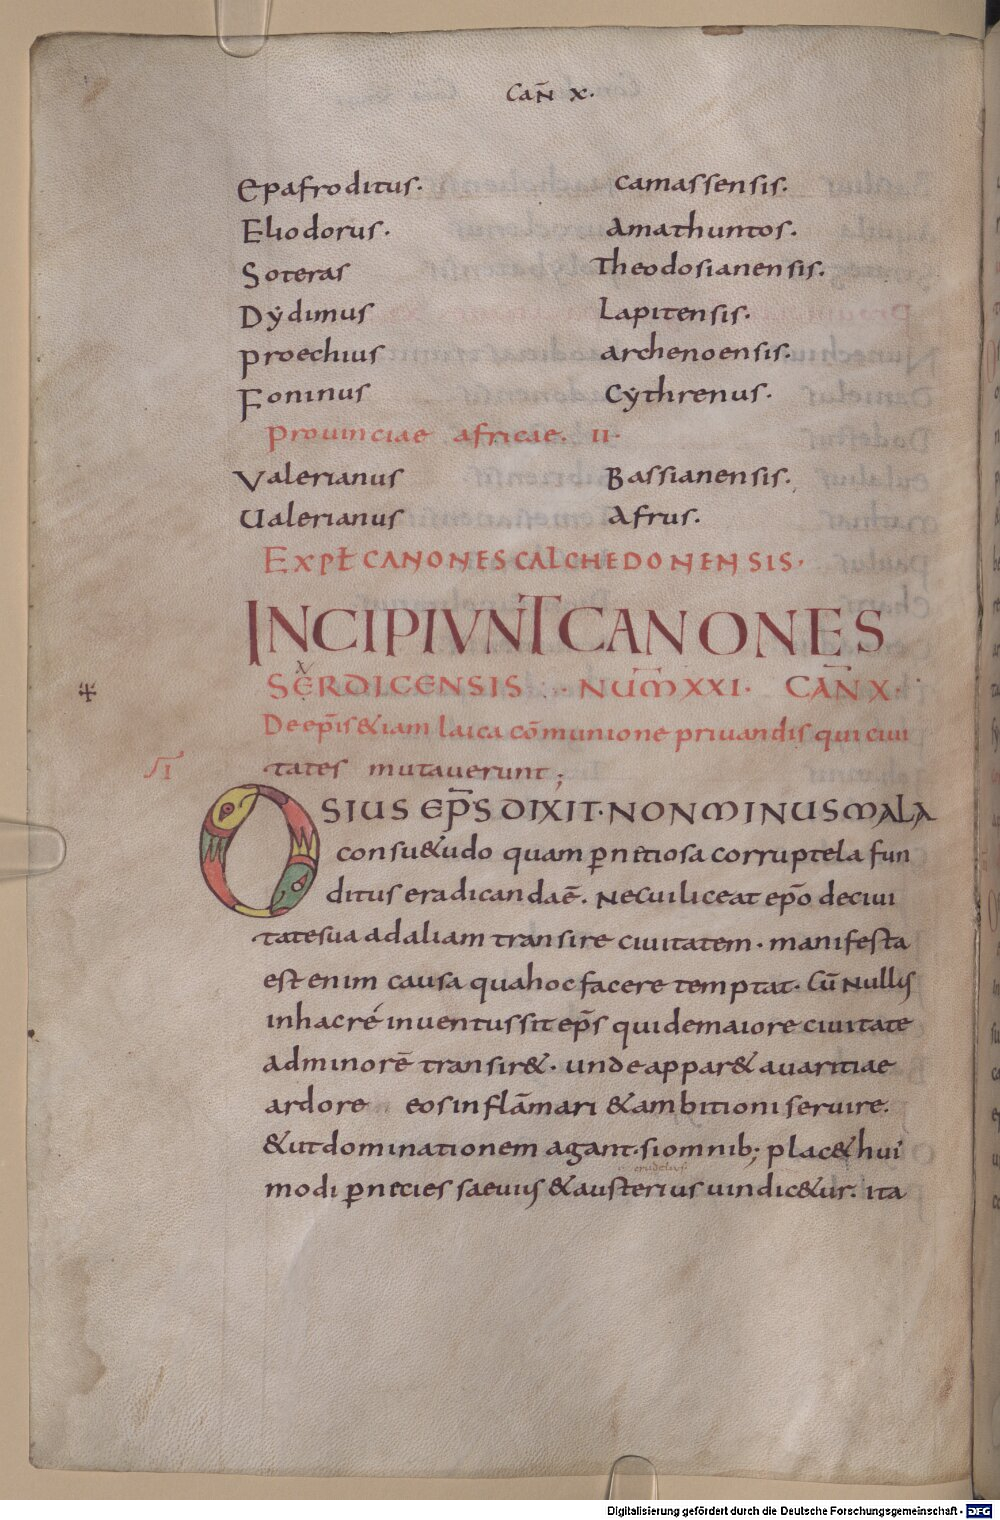 Cañ x.
Epafroditus. camassensis.
Eliodorus. amathuntos.
Soteras Theodosianensis.
Dẏdimus Lapitensis.
proechius archenoensis.
Foninus cẏthrenus.
prouinciae africae. II.
Valerianus Bassianensis.
Ualerianus afrus.
Expł CANONES CALCHEDONENSIS.
INCIPIUNT CANONES
SERDICENSIS NUM̄ XXI. CAÑ X.
De ep̄is &iam laica cōmunione priuandis qui ciui
tates mutauerunt;
I
OSIUS EP̄S DIXIT. NON MINUS MALA
consu&udo quam ꝑnitiosa corruptela fun
ditus eradicandaē. Necui liceat ep̄o deciui
tatesua adaliam transire ciuitatem. manifesta
est enim causa quahoc facere temptat. Cū Nullus
inhacré inuentus sit ep̄s qui demaiore ciuitate
adminorē transir&. unde appar& auaritiae
ardore eosinflāmari &ambitioni seruire.
&utdominationem agant. siomnib; plac& hui
modi ꝑnicies saeuius &austerius uindic&ur. ita
Digitalisierung gefördert durch die Deutsche Forschungsgemeinschaft - DFG